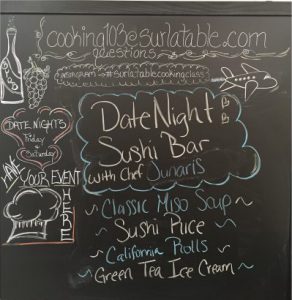 cooking103@surlatable.com
questions
instagram → #surlatablecookingclass
DATE NIGHTS
Friday
Saturday
Date Night
Sushi Bar
with Chef Junaris
HAVE
YOUR EVENT
HERE
Classic Miso Soup
Sushi Rice
California Rolls
Green Tea Ice Cream